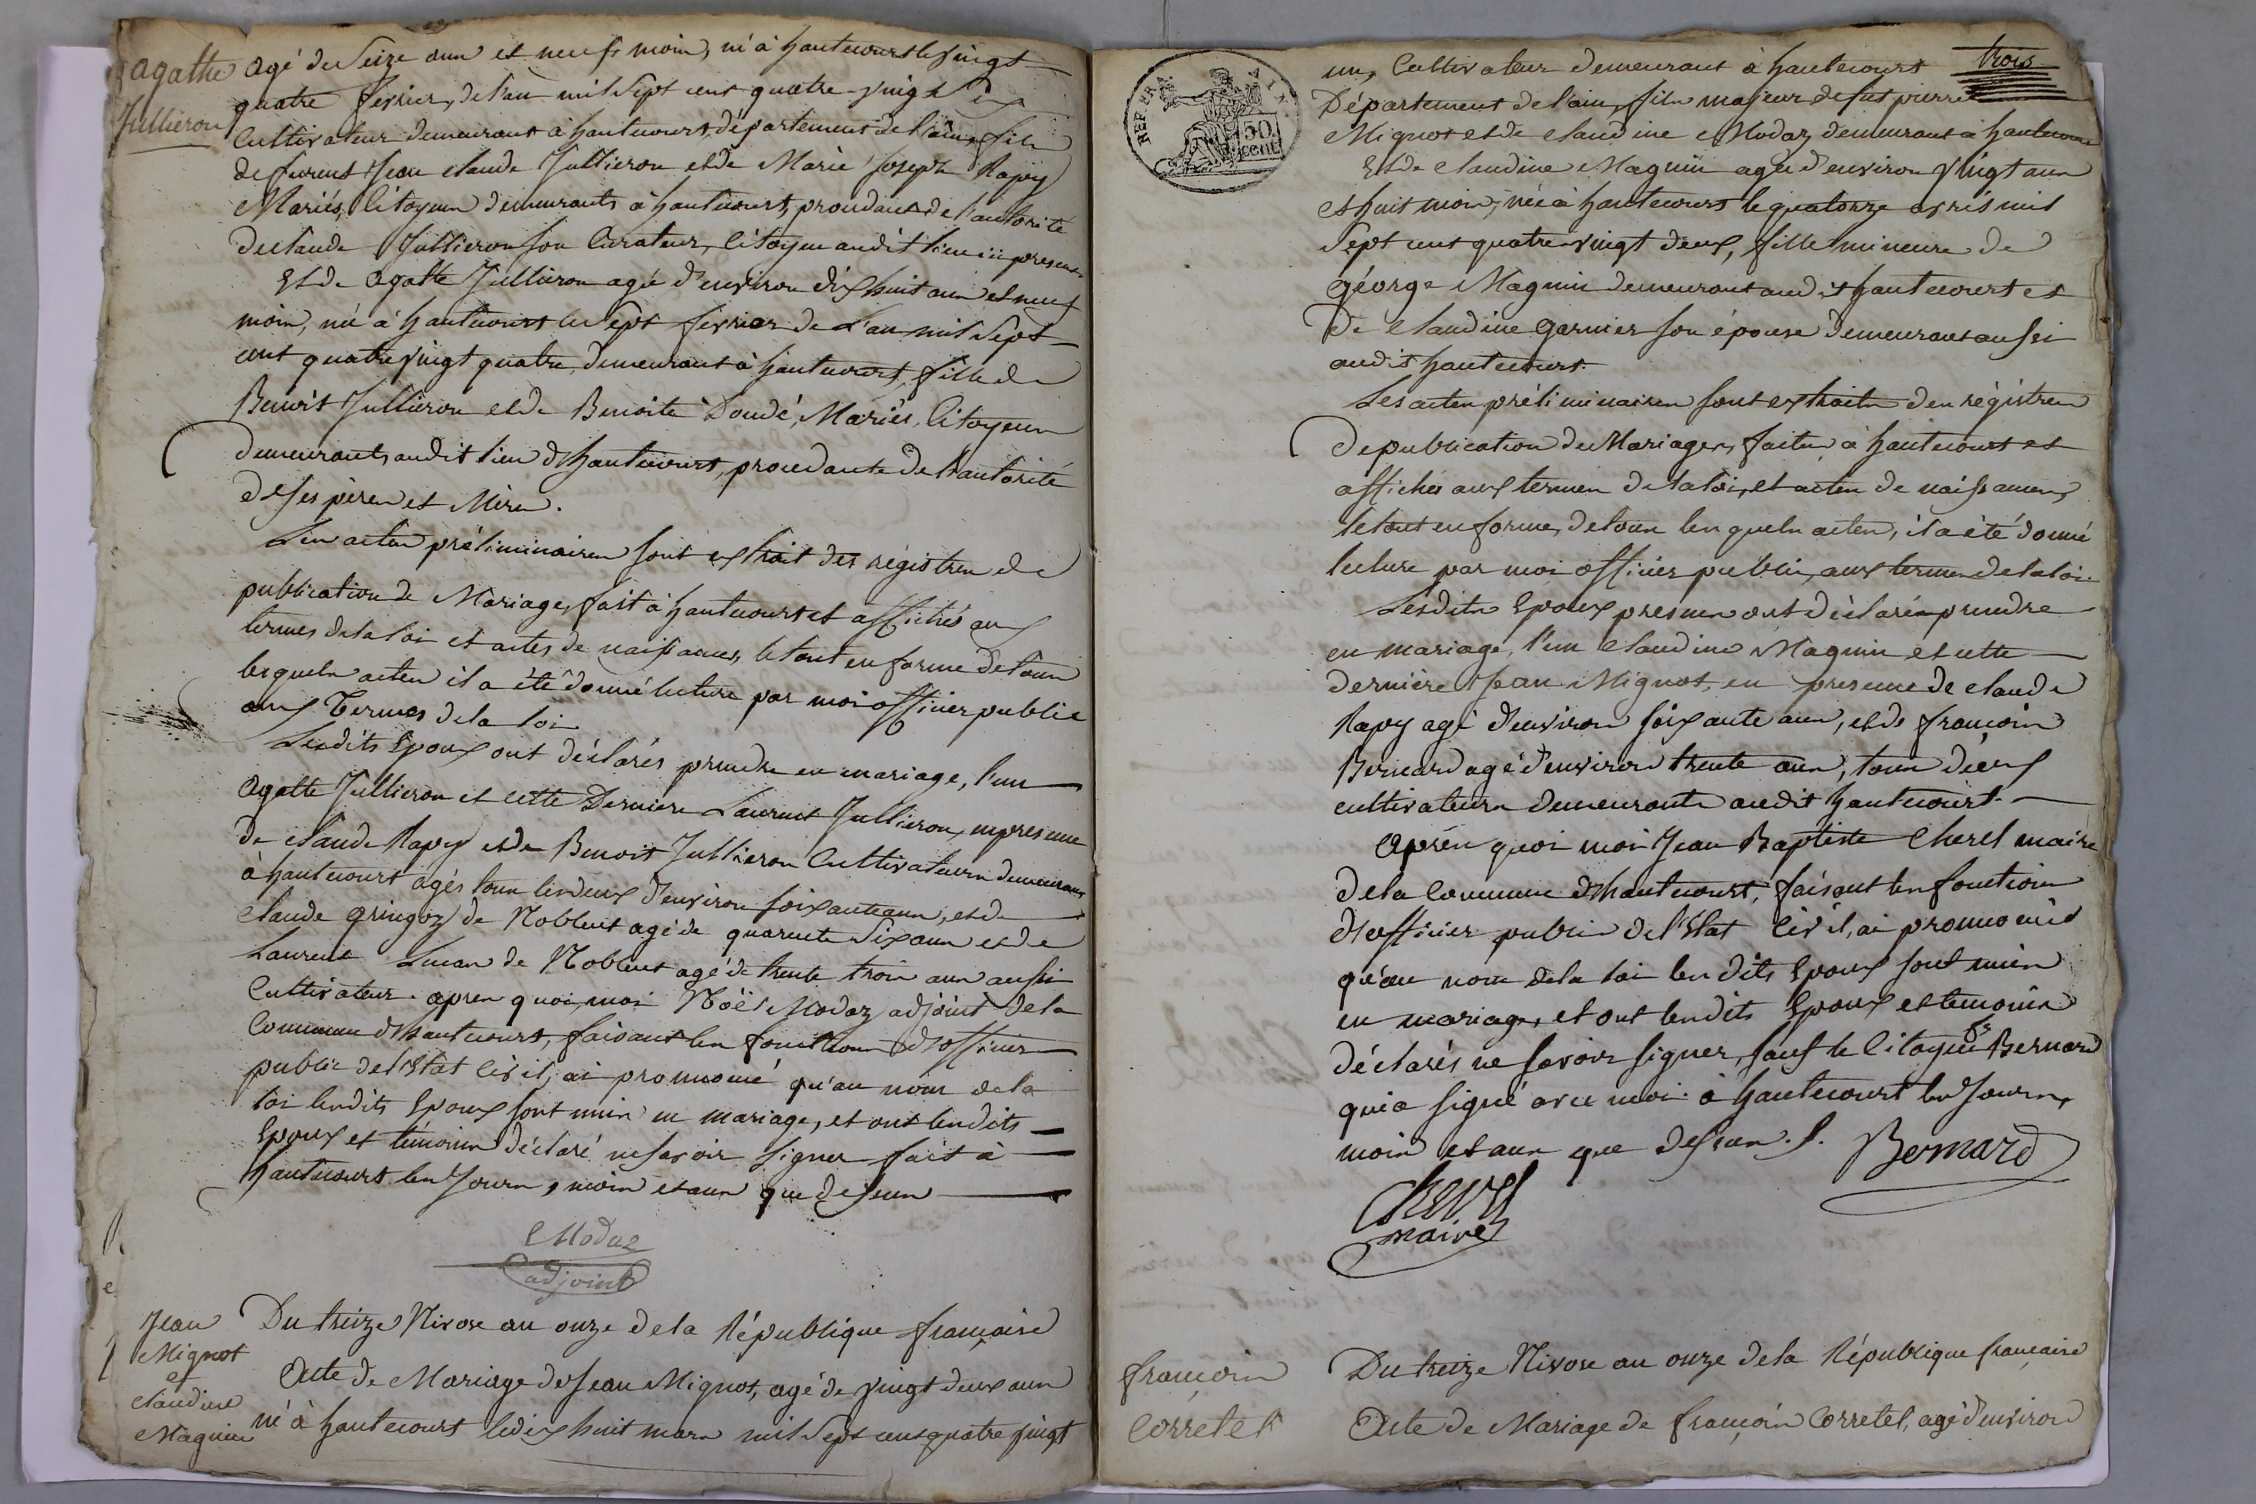 agathe
Jullieron
agé de Seize ans et neufs mois, né à hautecourt le vingt
quatre fevrier, de l'an mil Sept cent quatre-vingt Six
Cultivateur demeurant à hautecourt, département de l'ain, fils
de furent Jean claude Jullieron et de Marie Joseph Rapy
Mariés, Citoyens demeurants à hautecourt, procédant de l'autorité
de claude Jullieron son Curateur, Citoyen audit lieu ici present
Et de Agathe Jullieron agée d'environ dix huit ans et neuf
mois, née à hautecourt le Sept fevrier de L'an mil Sept
cent quatre vingt quatre, demeurant à hautecourt, fille de
Benoit Jullieron et de Benoite Doudé, Mariés, Citoyens
demeurants, audit lieu d'hautecourt, procedante de l'autorité
de Ses pères et Mère.
Les actes préliminaires sont extrait des régistres de
publication de Mariage, fait à hautecourt et affichés aux
termes de la loi et actes de naissances, le tout en forme de tous
lesquels actes il a été donné lecture par moi officier public
aux Termes de la loi
Lesdits Epoux ont déclarés prendre en mariage, l'un
Agathe Jullieron et cette Dernière Laurent Jullieron, en presence
de claude Rapy et de Benoit Jullieron Cultivateurs demeurans
à hautecourt agés tous les deux d'environ soixante ans, et de
Claude gringoz de Noblens agé de quarente Six ans et de
Laurent Lucan de Noblens agé de trente trois ans aussi
Cultivateur. apres quoi, moi Noël Modaz adjoint de la
Commune d'hautecourt, faisant les fonctions d'officier
public de l'Etat civil, ai prononcé qu'au nom de la
loi lesdits Epoux sont unis en mariage, et ont lesdits
Epoux et témoins déclaré ne savoir Signer fait à
hautecourt les Jours, mois et ans que dessus
Modaz
adjoint
Jean
Mignot
et
claudine
Magnin
Du treize Nivose an onze de la République française
Acte de Mariage de Jean Mignot, agé de vingt deux ans
né à hautecourt le dix huit mars mil Sept cent quatre vingt
trois
REP. FRA.
50
cent.
un, Cultivateur demeurant à hautecourt
Département de l'ain, fils majeur de fut pierre
Mignot et de claudine Modaz demeurant à hautecourt
Et de claudine Magnin agée d'environ vingt ans
et huit mois, née à hautecourt le quatorze avril mil
Sept cent quatre-vingt deux, fille mineure de
géorge Magnin demeurant audit hautecourt et
De claudine garnier son épouse demeurant aussi
audit hautecourt.
Les actes préliminaires sont extraits des régistres
de publication de Mariages, faites à hautecourt et
affichés aux termes de la loi, et actes de naissances,
le tout en forme, de tous lesquels actes, il a été donné
lecture par moi officier public, aux termes de la loi
Lesdits Epoux presens ont déclarés prendre
en mariage, l'un claudine Magnin et cette
dernière Jean Mignot, en presence de claude
Rapy agé d'environ soixante ans, et de françois
Bernard agé d'environ trente ans, tous deux
cultivateurs demeurants audit hautecourt.
Après quoi moi Jean Baptiste Cherel maire
de la Commune d'hautecourt, faisant les fonctions
d'officier public de l'Etat civil, ai prononcés
qu'au nom de la loi lesdits Epoux sont unis
en mariage, et ont lesdits Epoux et temoins
déclarés ne savoir signer, sauf le Citoyen Bernard
qui a signé avec moi. à hautecourt les Jours,
mois et ans que dessus.
Bernard
Cherel
maire
françois
Corretel
Du treize Nivose an onze de la République française
Acte de Mariage de françois Corretel, agé d'environ